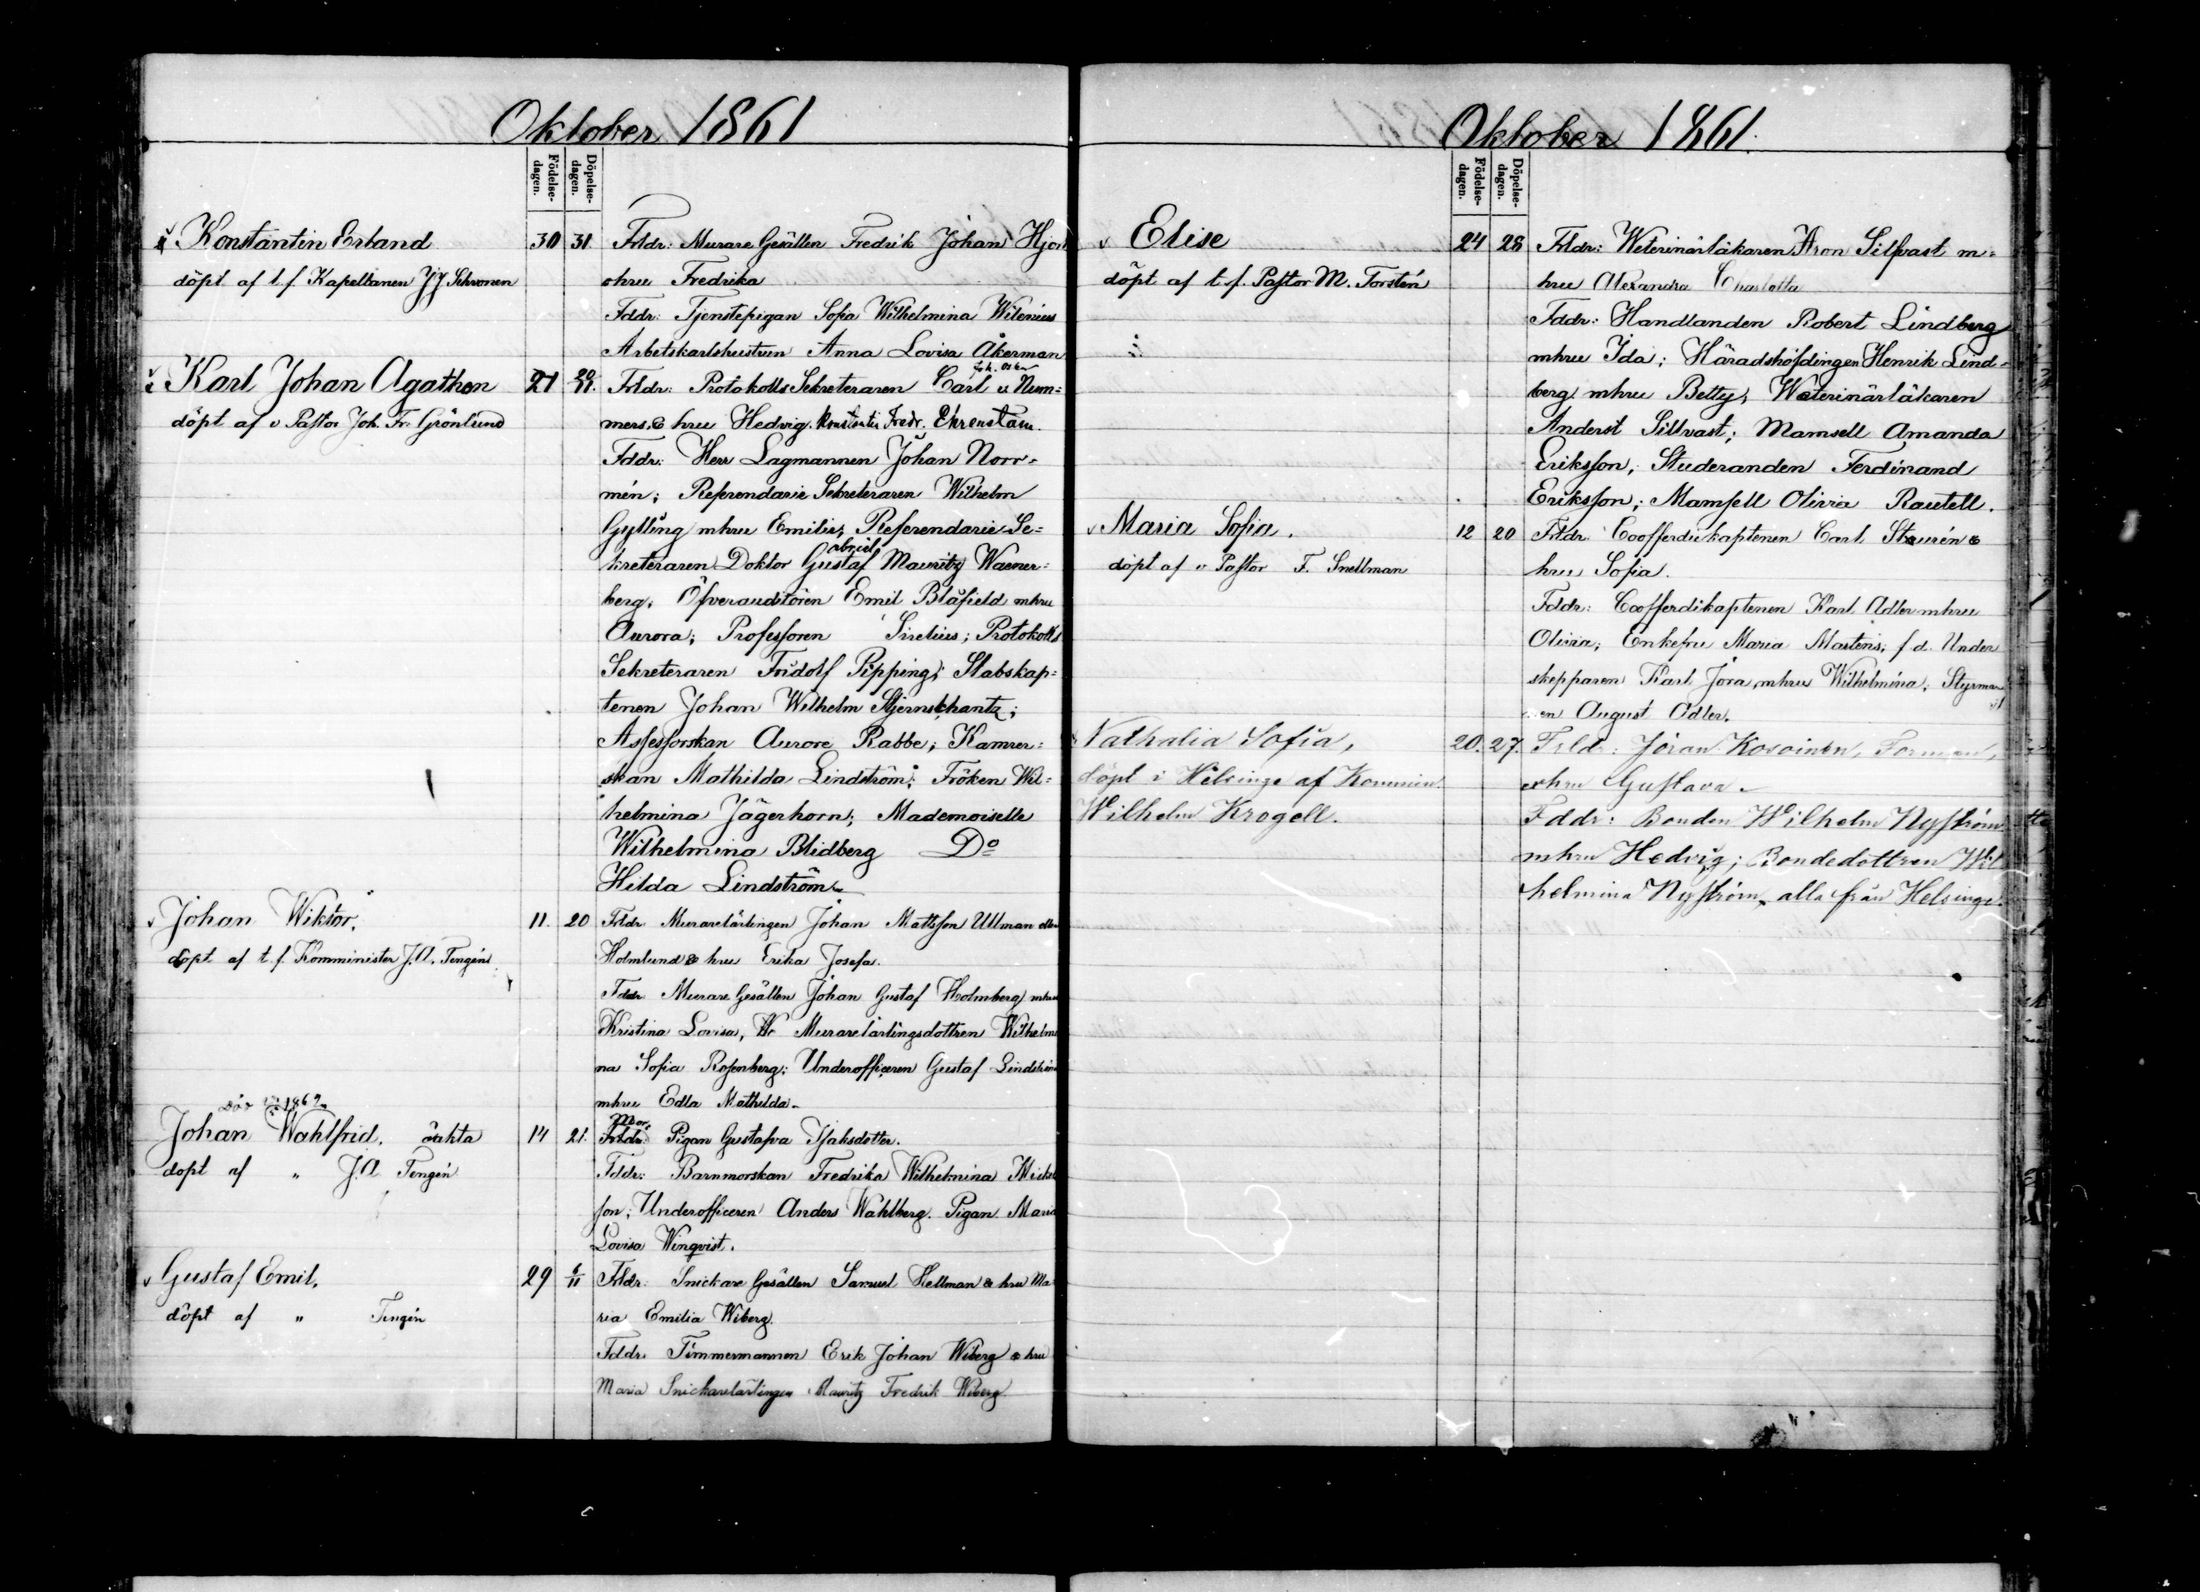 Oktober 1861
Födelse-
dagen.
Döpelse-
dagen.
Konstantin Erland
30 31.
döpt af t. f. Kapellanen
Frldr: Murare Gesällen Fredrik Johan
ohru Fredrika
Fddr: Tjenstepigan Sofia Wilhelmina Wilenius
Arbetskarlshustrun Anna Lovisa Åkerman
Karl Johan Agathon
21
döpt af v Pastor Joh. Fr. Grönlund
Frldr: Protokolls Sekreteraren Carl v. Num-
mers & hru Hedvig Fredr. Ehrenstam.
Fddr: Herr Lagmannen Johan Norr-
mén; Referendarie Sekreteraren Wilhelm
Gylling mhru Emilie; Referendarie Se-
kreteraren Doktor Gustaf Mauritz Waener-
berg; Öfverauditören Emil Blåfield mhru
Aurora; Professoren Sirelius; Protokolls
Sekreteraren Fridolf Pipping; Stabskap-
tenen Johan Wilhelm Stjernschantz;
Assessorskan Aurore Rabbe; Kamrer-
skan Mathilda Lindström; Fröken Wil-
helmina Jägerhorn; Mademoiselle
Wilhelmina Blidberg Do
Hilda Lindström
Johan Wiktor.
11. 20
döpt af t. f. Komminister J. A. Tengén
Frldr Murarelärlingen Johan Mattsson Ullman
Holmlund & hru Erika Josefa.
Fddr Murare Gesällen Johan Gustaf Holmberg mhru
Kristina Lovisa, Murarelärlingsdottren Wilhelmi
na Sofia Rosenberg; Underofficeren Gustaf Lindström
mhru Edla Mathilda
Johan Wahlfrid. oäkta
14 21.
döpt af " J. A Tengén
Mor.
Frldr: Pigan Gustafva Isaksdotter.
Fddr: Barnmorskan Fredrika Wilhelmina
son; Underofficeren Anders Wahlberg. Pigan Maria
Lovisa Winqvist.
Gustaf Emil.
29 6/11
döpt af " Tengén
Frldr: Snickare Gesällen Samuel Hellman & hru Ma
ria Emilia Wiberg.
Fddr. Timmermannen Erik Johan Wiberg & hru
Maria Snickarelärlingen Mauritz Fredrik Wiberg
Oktober 1861.
Födelse-
dagen.
Döpelse-
dagen.
Elise
24 28
döpt af t. f. Pastor M. Forstén
Frldr: Weterinärläkaren Aron Silfvast m-
hru Alexandra Charlotta
Fddr: Handlanden Robert Lindberg
mhru Ida; Häradshöfdingen Henrik Lind-
berg mhru Betty; Weterinärläkaren
Anders Sillvast; Mamsell Amanda
Eriksson, Studeranden Ferdinand
Eriksson; Mamsell Olivia Rautell.
Maria Sofia.
12 20
döpt af v Pastor F. Snellman
Frldr Coofferdiekaptenen Carl &
hru Sofia.
Fddr: Coofferdikaptenen Karl Adler mhru
Olivia; Enkefru Maria Martens; f d. Under
skepparen Karl Jora mhru Wilhelmina; Styrman
nen August Adler.
Nathalia Sofia,
20. 27.
döpt i Helsinge af Kommin.
Wilhelm Krogell.
Frld: Jöran Kosoinen, Forman,
ohru Gustava.
Fddr: Bonden Wilhelm Nyström
mhru Hedvig; Bondedottren Wil
helmina Nyström, alla från Helsinge.